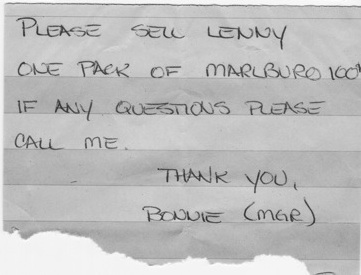 PLEASE SELL LENNY
ONE PACK OF MARLBURO 100's
IF ANY QUESTIONS PLEASE
CALL ME.
THANK YOU,
BONNIE (MGR)